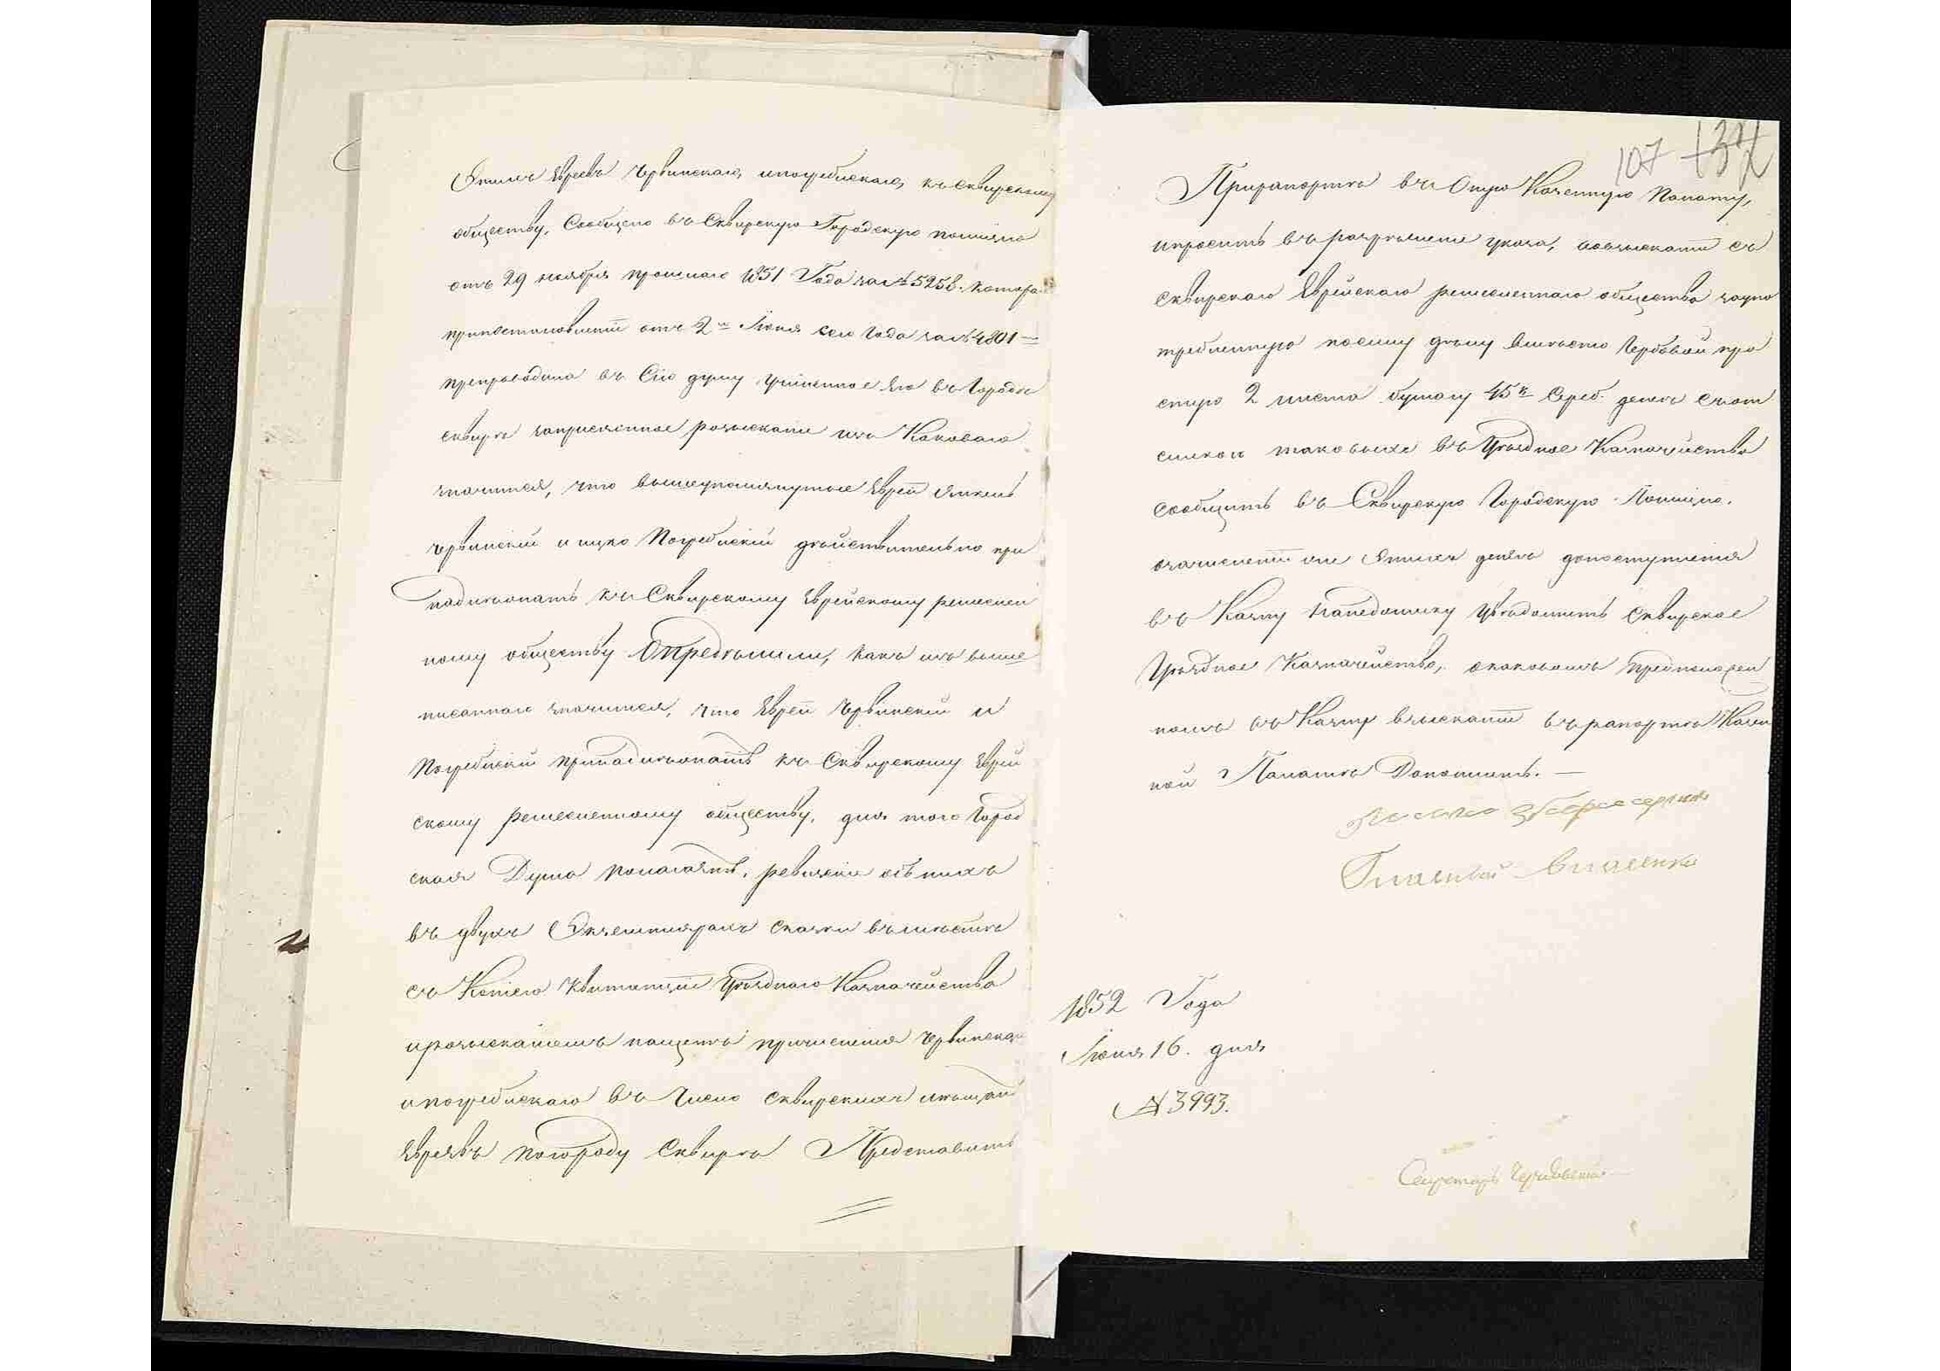 Этихъ Евреевъ Червинскаго, ипогребискаго, къ Сквирскому
обществу, Сообщено въ Сквирскую Городскую полицію
отъ 29 ноября прошлаго 1851 Года за №5258. котора
приотстановленіи отъ 2го Июня сего Года за №4801 —
препроводила въ Сію думу учиненное Ею въ Городѣ
Сквирѣ заприсяжное розысканіе изъ Коковаго
значится, что вышеупомянутые Еврей
Червинскій и ицко Погребискій дѣйствительно при
надлежатъ къ Сквирскому Еврейскому ремеслен
ному обществу Опредѣлили, какъ изъ выше
писаннаго значится, что Еврей Червинскій и
Погребискій принадлежатъ къ Сквирскому Еврей
скому ремесленному обществу, для того Город
ская Дума полагаетъ, ревизскіе объ нихъ
въ двухъ Экземплярахъ сказки вмѣстѣ
съ Копіею Квитанціи Уѣзднаго Казначейства
ирозысканіемъ причисленія Червинскаго
ипогребискаго въ Число Сквирскихъ мѣщанъ
Евреевъ погороду Сквирѣ Представить
107 132
Прирапортѣ въ Оную Казенную Полату,
ипросить въ разрѣшеніе указа, овзысканіи съ
Сквирскаго Еврейскаго ремесленнаго общества заупо
требленную посему дѣлу вмѣсто Гербовой про
стую 2 листа бумагу 45к Сереб. денегъ съот
сылкою таковыхъ въ Уѣздное Казначейство
сообщить въ Сквирскую Городскую Полицію.
озачисленіи же Этихъ денегъ допоступленія
въ Казну понедоимку Увѣдомить Сквирское
Уѣздное Казначейство, окаковомъ предположен
номъ въ Казну взысканіи въ рапортѣ Казен
ной Палатѣ Дополнить. —
Гласный Власенко
1852 Года
Июня 16. дня
№3993.
Секретарь